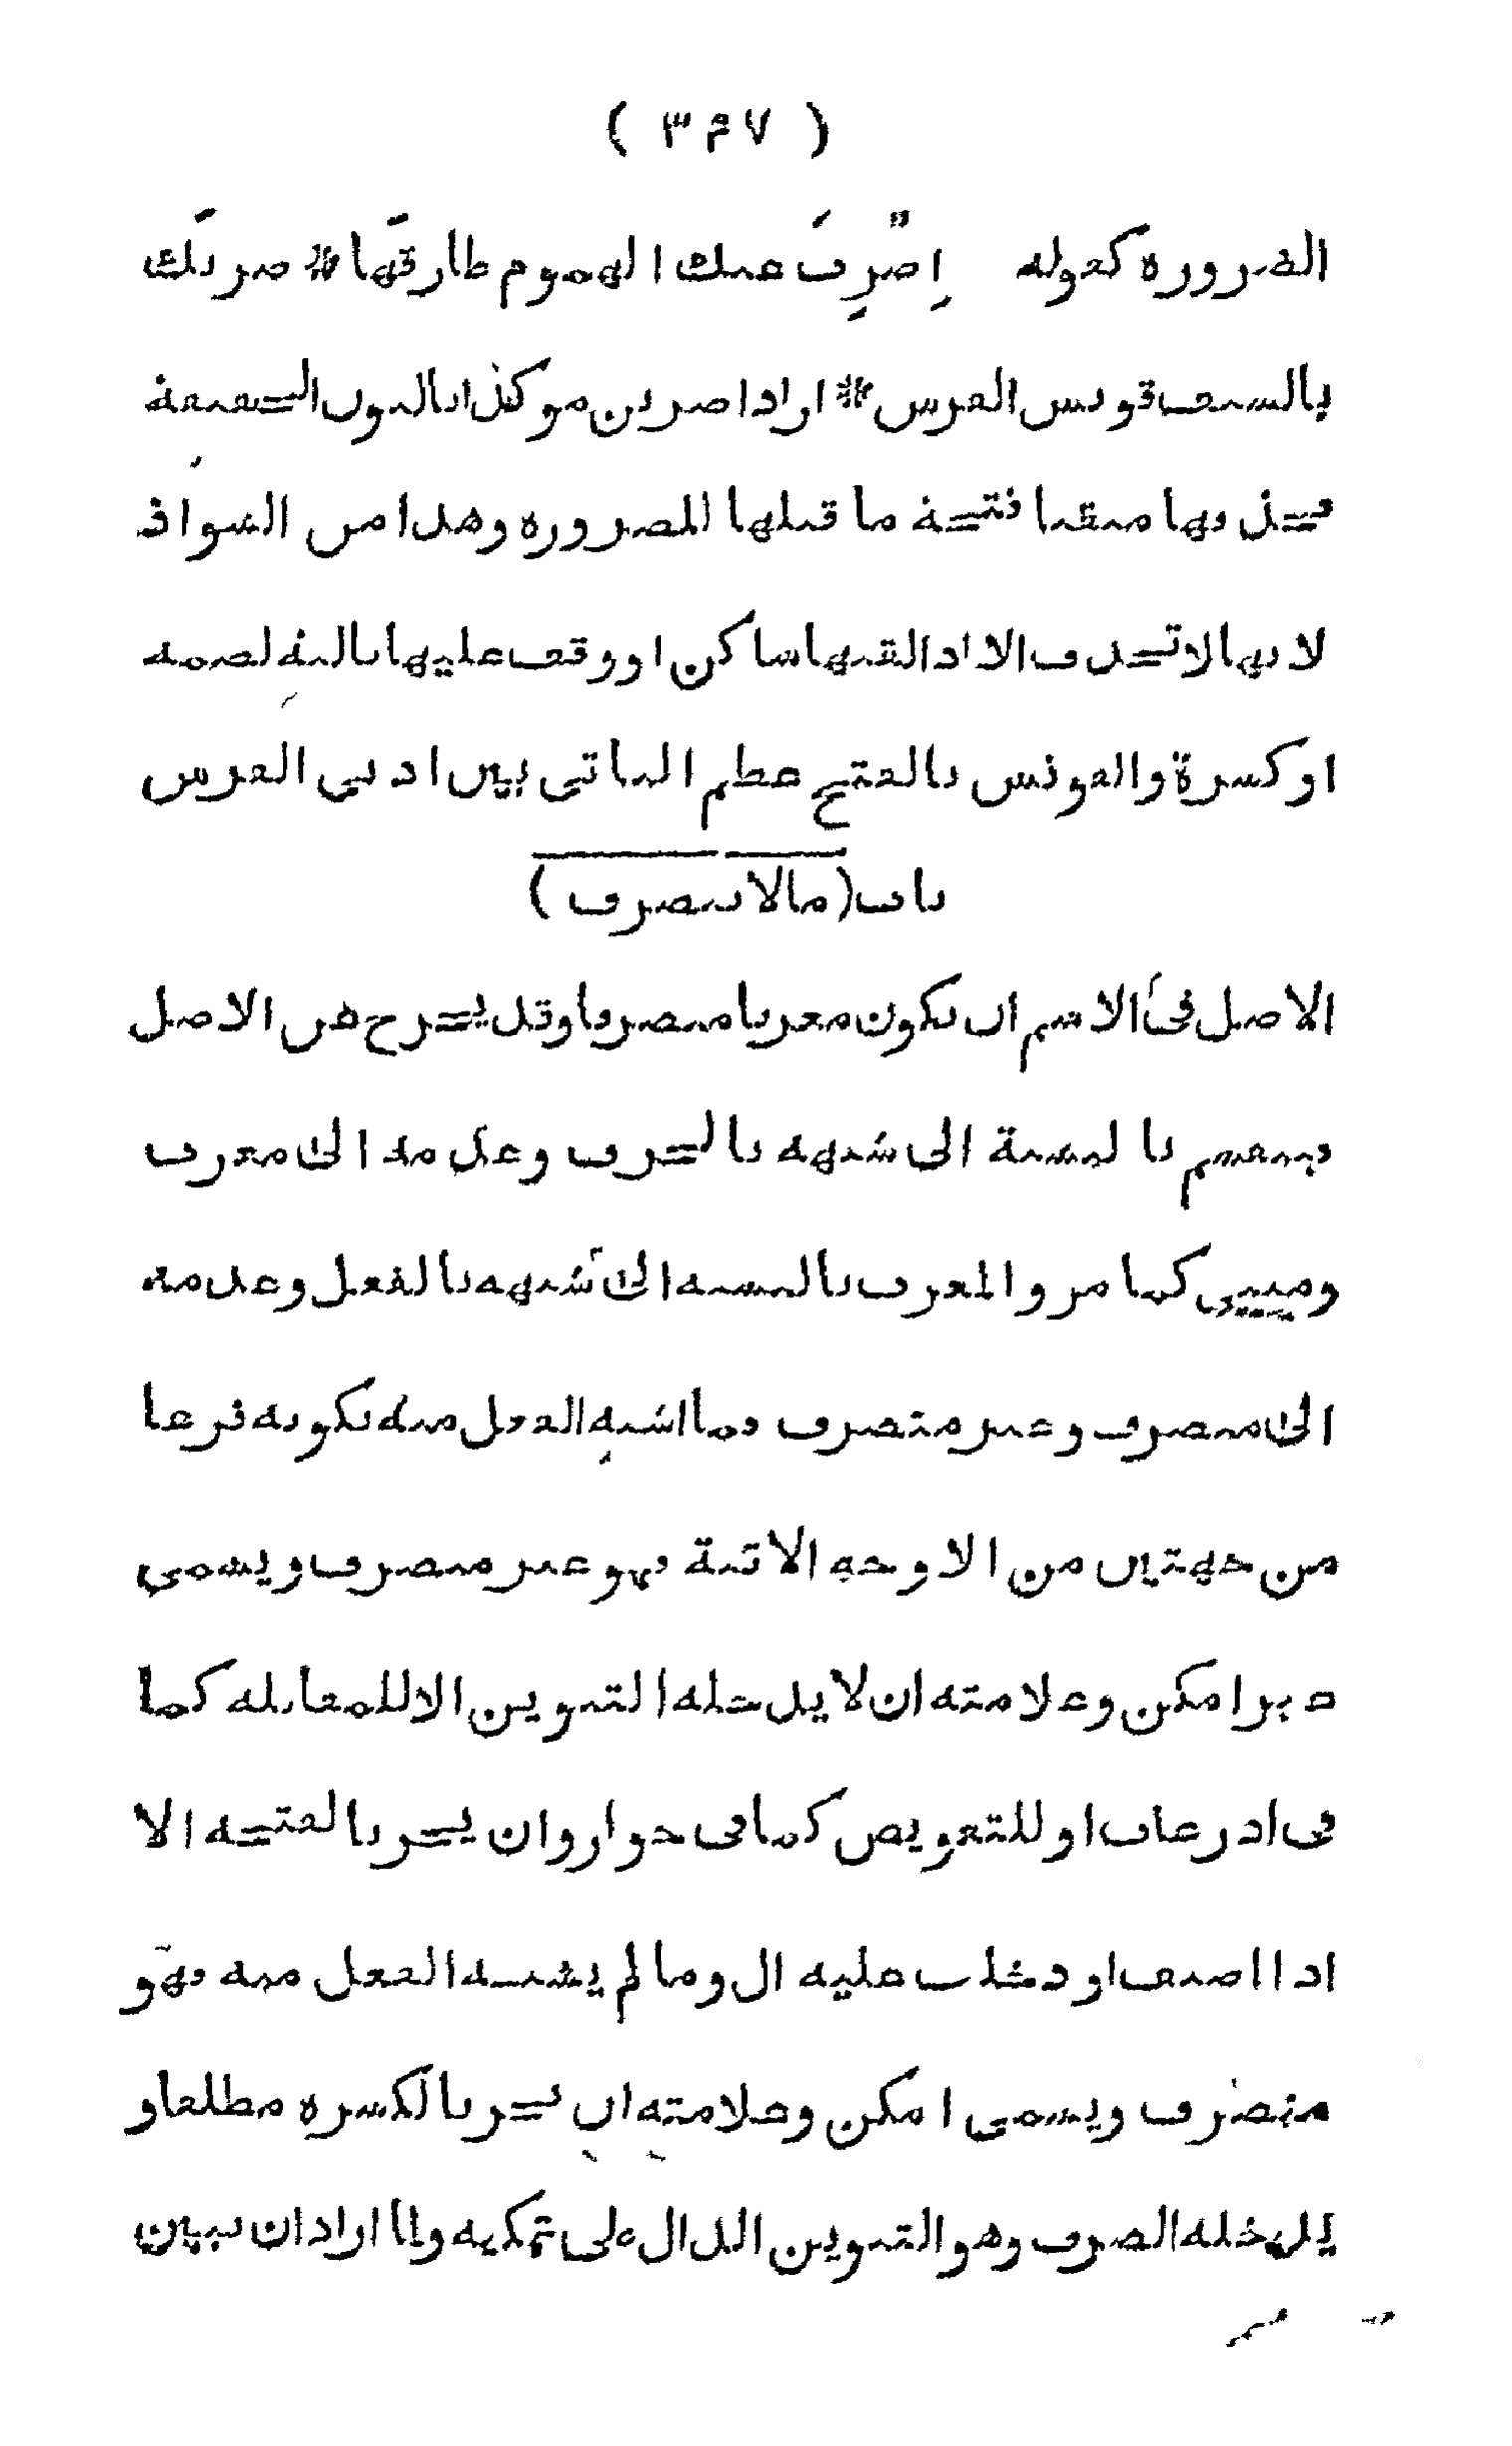 ( ٣٤٧ )
الضرورة كقوله اِضْرِبَ عنك الهموم طارقها * ضربك
بالسيف قونس الفرس * اراد اضربن موكدا بالنون الخفيفة
فحذفها مبقيا فتحة ما قبلها للضرورة وهذا من الشواذ
لانها لا تحذف الا اذا لقيها ساكن او وقف عليها تالية لضمة
او كسرة والقونس بالفتح عظم الناتى بين اذنى الفرس
باب (مالا ينصرف)
الاصل فى الاسم ان يكون معربا منصرفا وقد يخرج عن الاصل
فينقسم بالنسبة الى شبهه بالحرف وعدمه الى معرب
ومبنى كما مر والمعرب بالنسبة الى شبهه بالفعل وعدمه
الى منصرف وغير منصرف فما اشبه الفعل منه بكونه فرعا
من جهتين من الاوجه الاتية فهو غير منصرف ويسمى
غير امكن وعلامته ان لا يدخله التنوين الا للمقابلة كما
فى اذرعات او للتعويض كما فى جوار وان يجر بالفتحة الا
اذا اضيف او دخلت عليه ال وما لم يشبه الفعل منه فهو
منصرف ويسمى امكن وعلامته ان يجر بالكسرة مطلقا و
يدخله الصرف وهو التنوين الدال على تمكنه ولما اراد ان يبين